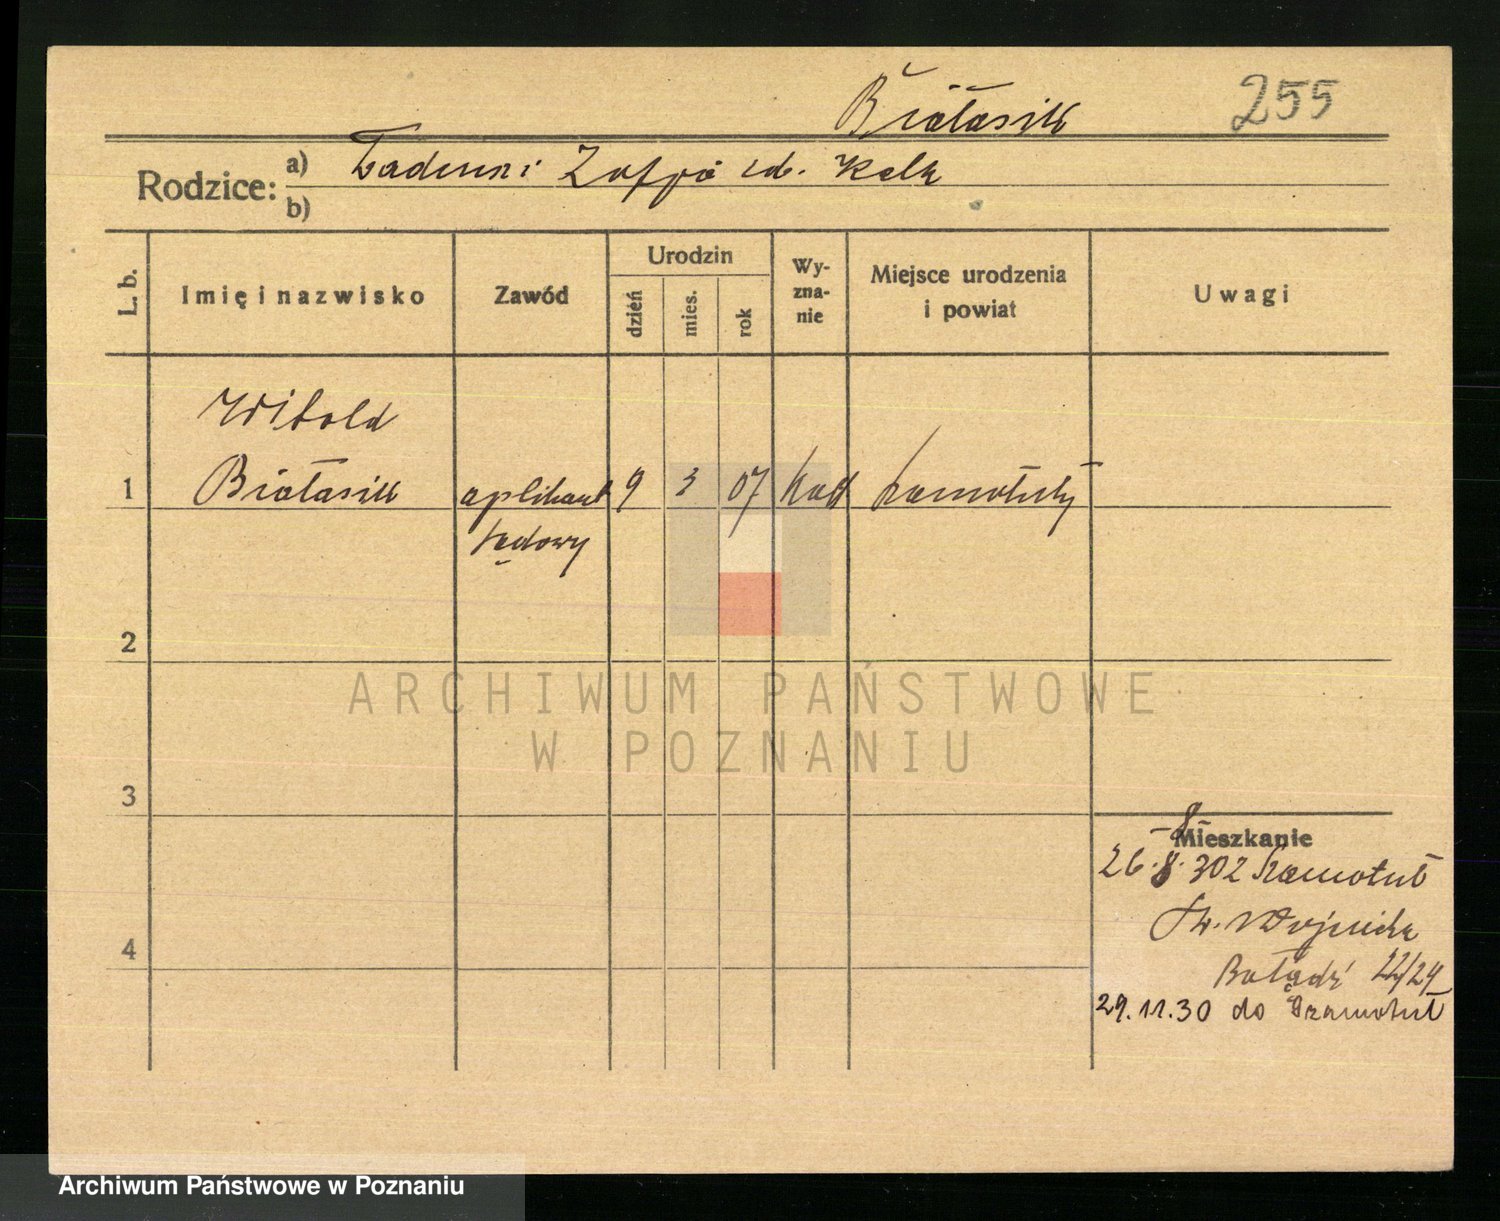 Białasik 255
Rodzice: a) Tadeusz i Zofja zd. Kalk
b)
L. b. Imię i nazwisko Zawód Urodzin dzień mies. rok Wyzna-nie Miejsce urodzenia i powiat Uwagi
Witold
1 Białasik aplikant 9 3 07 kat Szamotuły
sądowy
2
ARCHIWUM PAŃSTWOWE
W POZNANIU
3
Mieszkanie
26.8.30 z Szamotuł
Św. Wojciecha
22/24
4
29.11.30 do Szamotuł
Archiwum Państwowe w Poznaniu